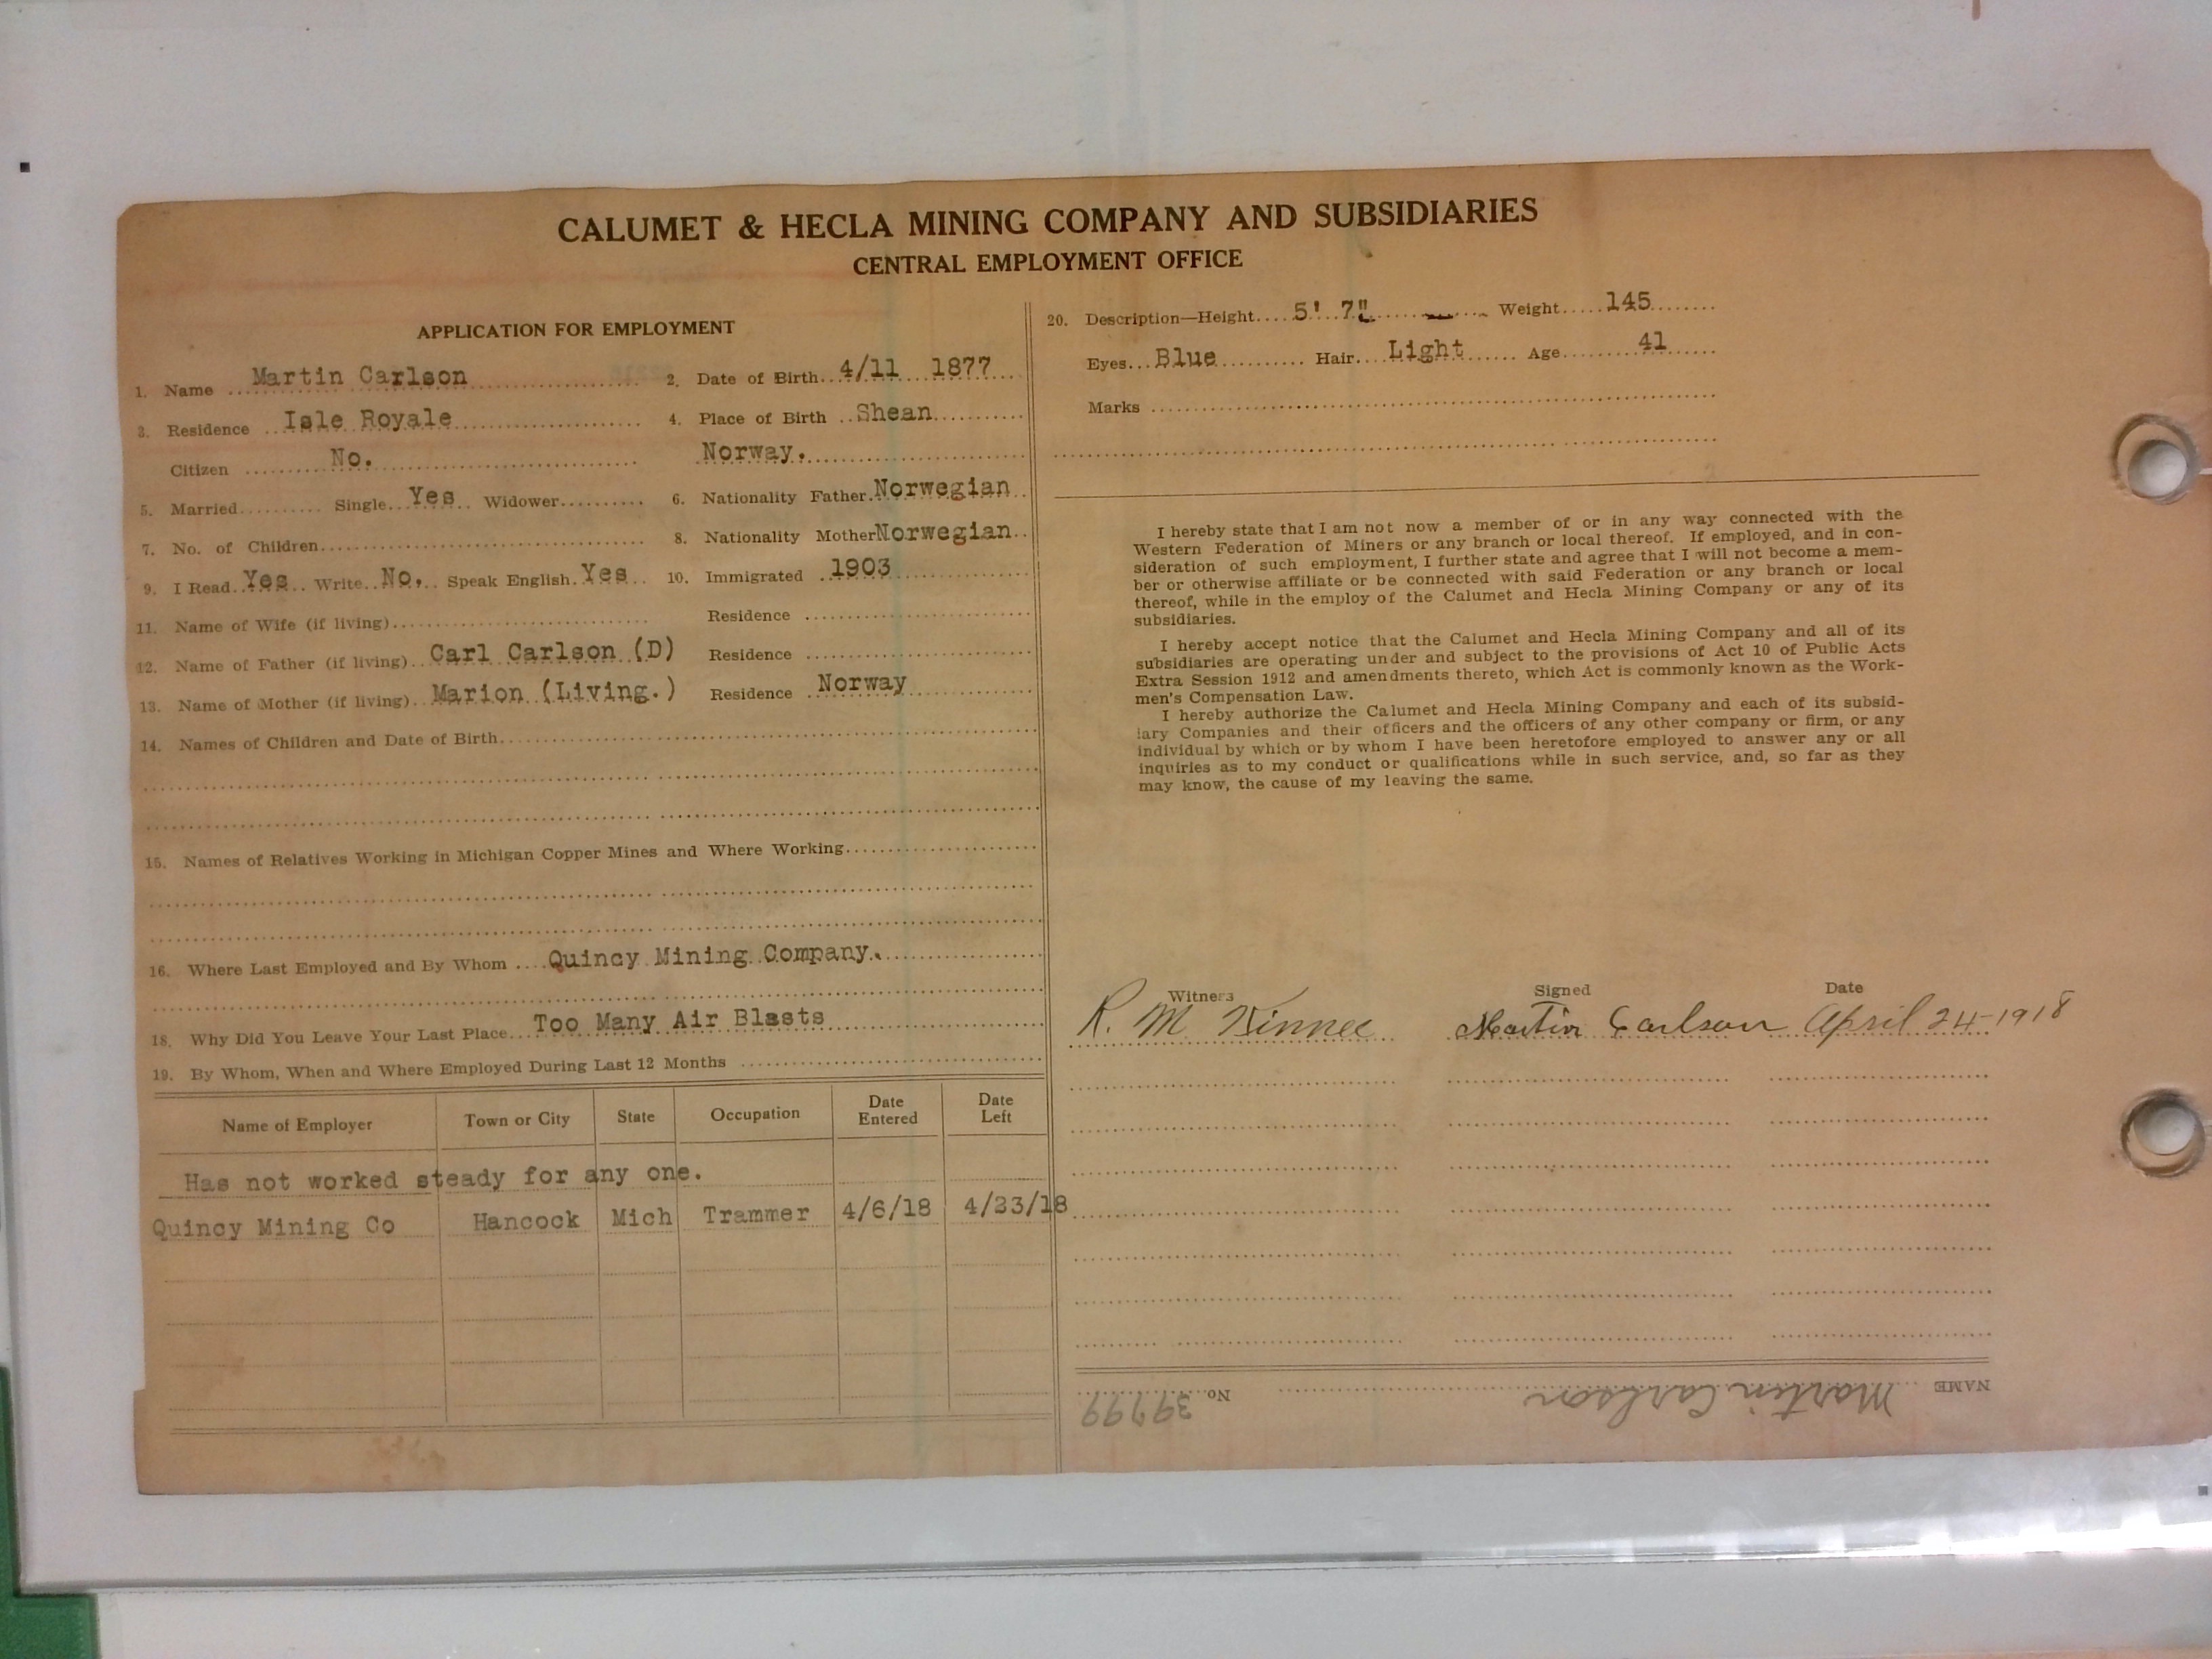 CALUMET & HECLA MINING COMPANY AND SUBSIDIARIES
CENTRAL EMPLOYMENT OFFICE
APPLICATION FOR EMPLOYMENT
1. Name Martin Carlson 2. Date of Birth 4/11 1877
3. Residence Isle Royale 4. Place of Birth Shean
Citizen No. Norway.
5. Married Single Yes Widower 6. Nationality Father Norwegian
7. No. of Children 8. Nationality Mother Norwegian
9. I Read Yes Write No. Speak English Yes 10. Immigrated 1903
11. Name of Wife (if living) Residence
12. Name of Father (if living) Carl Carlson (D) Residence
13. Name of Mother (if living) Marion (Living.) Residence Norway
14. Names of Children and Date of Birth
15. Names of Relatives Working in Michigan Copper Mines and Where Working
16. Where Last Employed and By Whom Quincy Mining Company.
18. Why Did You Leave Your Last Place Too Many Air Blasts
19. By Whom, When and Where Employed During Last 12 Months
Name of Employer Town or City State Occupation Date Entered Date Left
Has not worked steady for any one.
Quincy Mining Co Hancock Mich Trammer 4/6/18 4/23/18
20. Description—Height 5' 7" Weight 145
Eyes Blue Hair Light Age 41
Marks
I hereby state that I am not now a member of or in any way connected with the
Western Federation of Miners or any branch or local thereof. If employed, and in con-
sideration of such employment, I further state and agree that I will not become a mem-
ber or otherwise affiliate or be connected with said Federation or any branch or local
thereof, while in the employ of the Calumet and Hecla Mining Company or any of its
subsidiaries.
I hereby accept notice that the Calumet and Hecla Mining Company and all of its
subsidiaries are operating under and subject to the provisions of Act 10 of Public Acts
Extra Session 1912 and amendments thereto, which Act is commonly known as the Work-
men's Compensation Law.
I hereby authorize the Calumet and Hecla Mining Company and each of its subsid-
iary Companies and their officers and the officers of any other company or firm, or any
individual by which or by whom I have been heretofore employed to answer any or all
inquiries as to my conduct or qualifications while in such service, and, so far as they
may know, the cause of my leaving the same.
Witness Signed Date
R. M Kinnee Martin Carlson April 24-1918
NAME Martin Carlson No. 39799